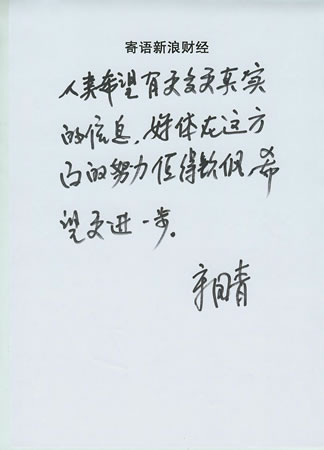 寄语新浪财经
人类希望有更多更真实
的信息,媒体在这方
面的努力值得钦佩,希
望更进一步。